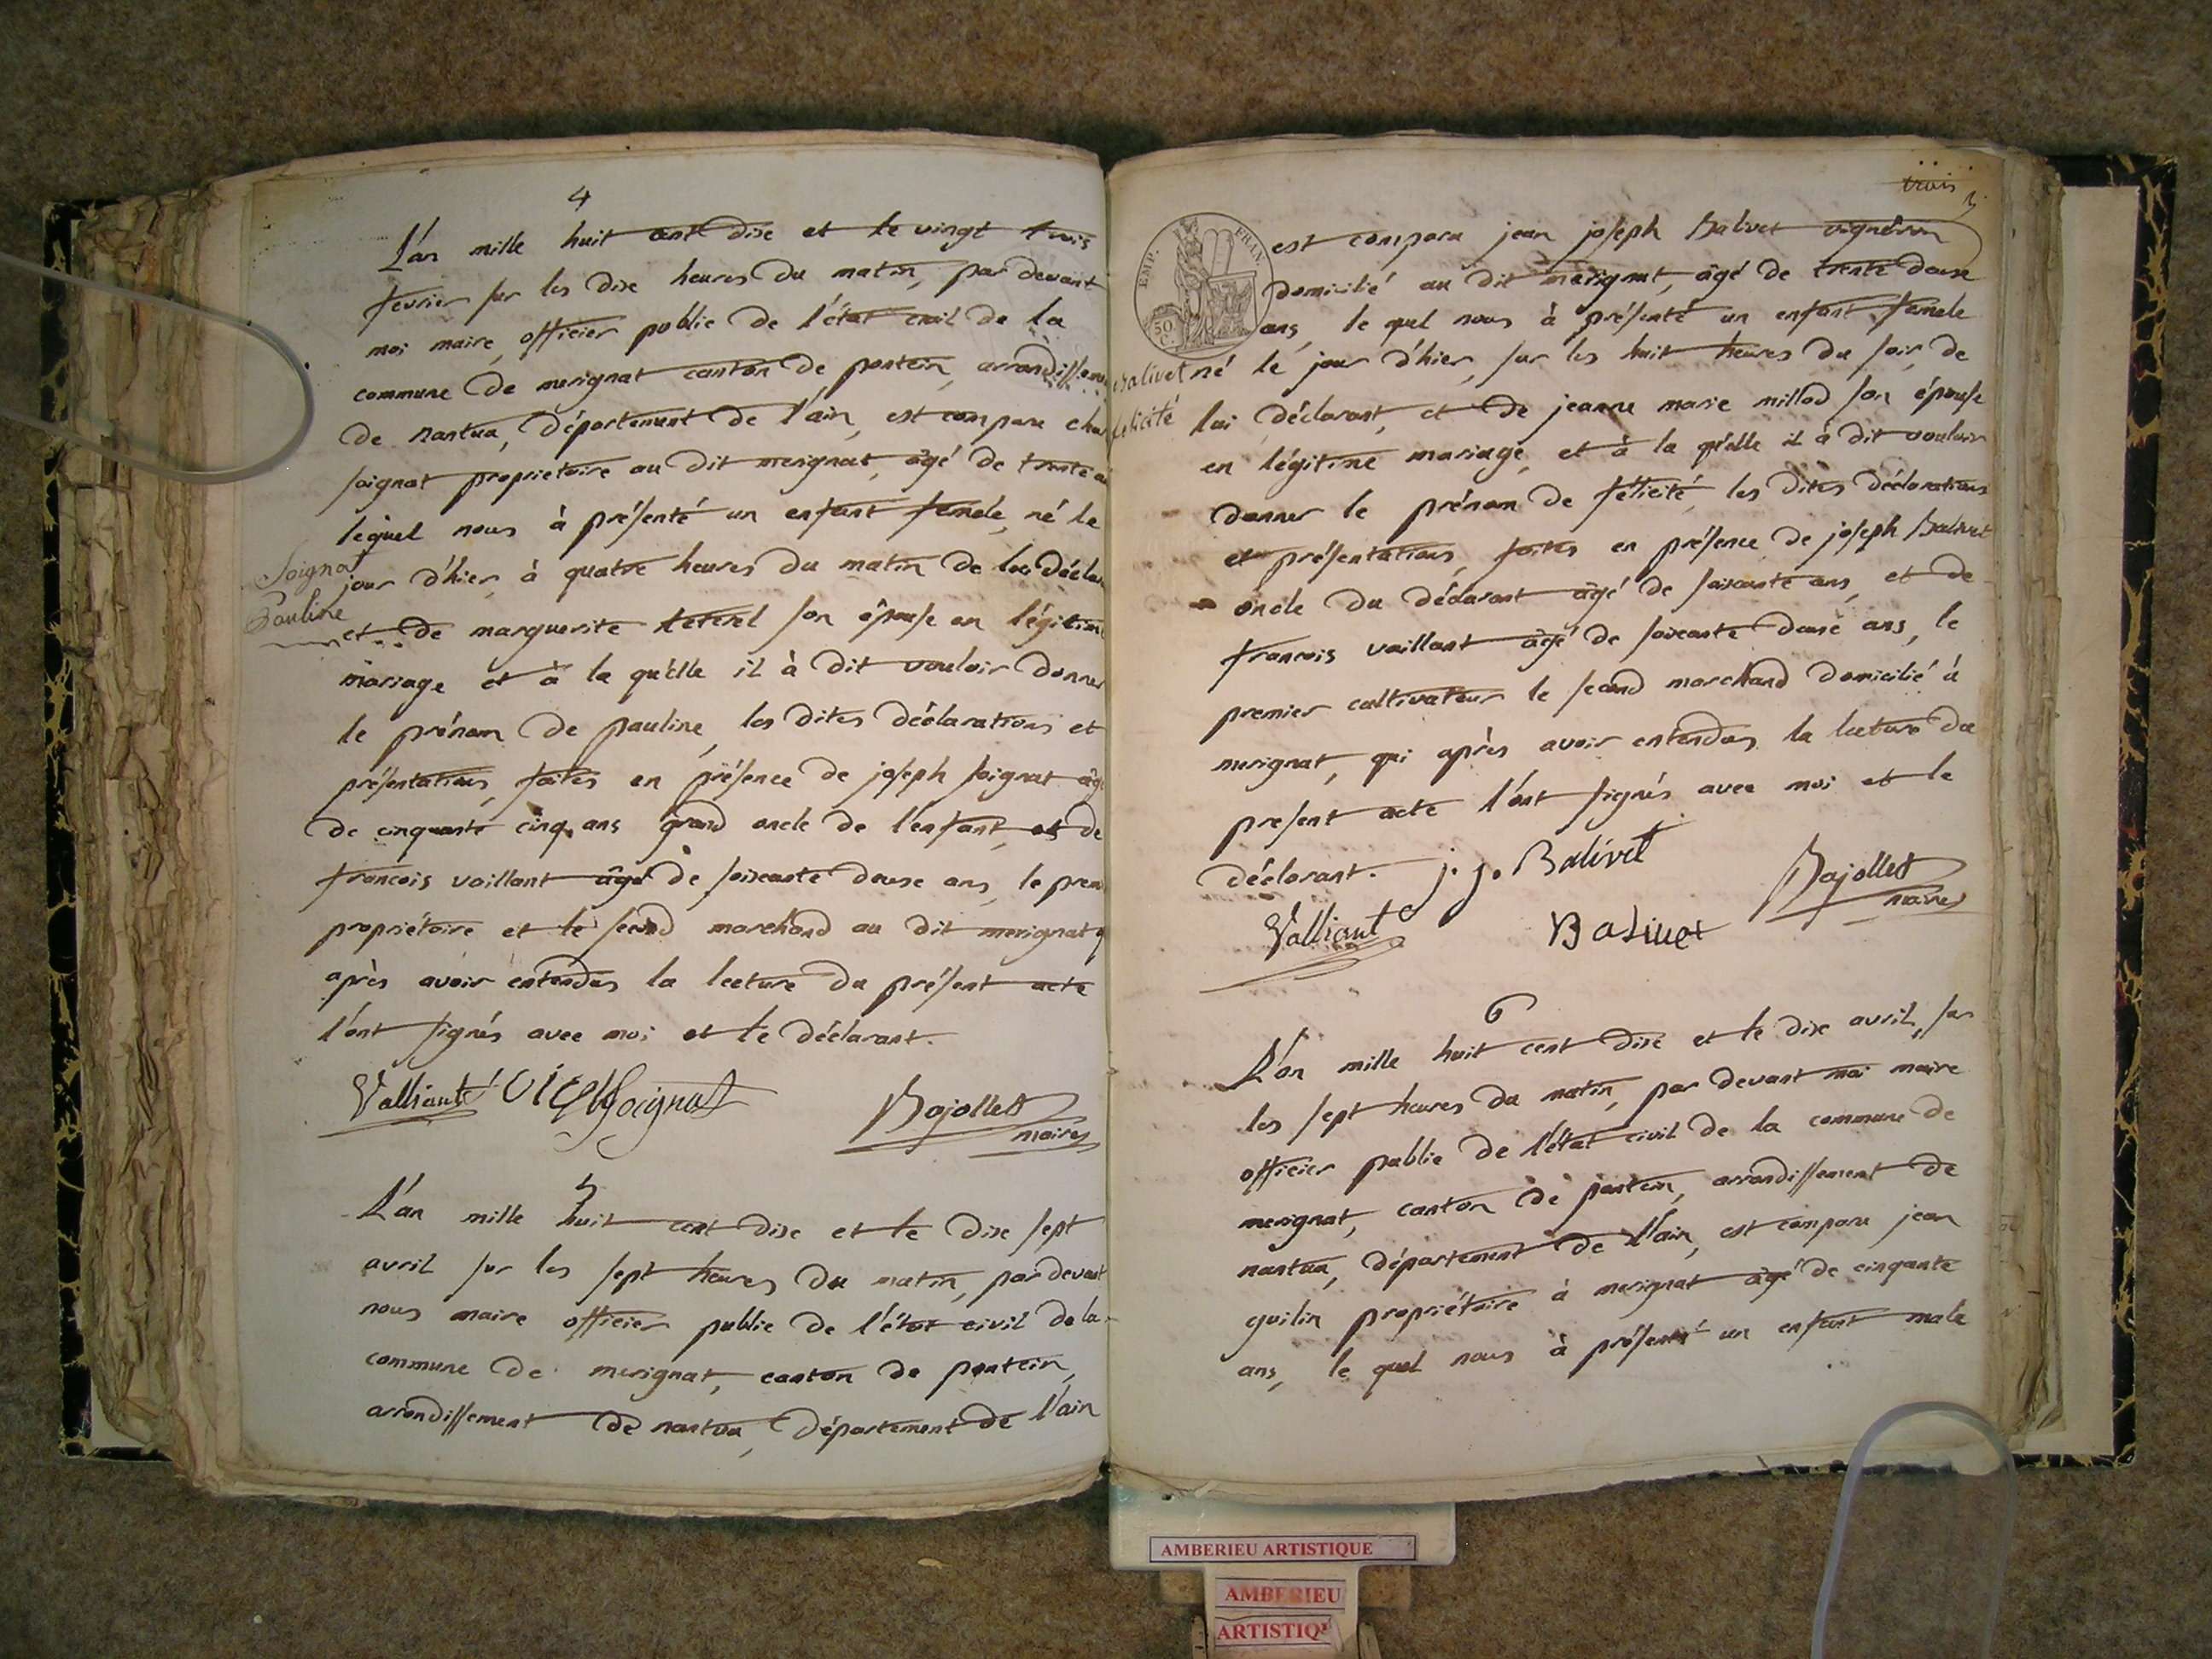 4
L'an mille huit cent dixe et le vingt trois
fevrier sur les dixe heures du matin, par devant
moi maire, officier public de l'état civil de la
commune de merignat canton de pontein, arrondissem
de nantua, département de l'ain, est comparu
soignat proprietaire au dit merignat, âgé de trente
lequel nous à présenté un enfant femele, né le
Soignat
Pauline
jour d'hier, à quatre heures du matin de lui décla
et de marguerite son épouse en légitime
mariage et à la quélle il à dit vouloir donner
le prénom de pauline, les dites déclarations et
présentations, faites en présence de joseph soignat âgé
de cinquante cinq ans grand oncle de l'enfant, et de
francois vaillant âgé de soixante douse ans, le prem
propriétaire et le second marchand au dit merignat q
après avoir entendus la lecture du présent acte
l'ont signés avec moi et le déclarant.
Valliant Soignat Bajollet
maire
5
L'an mille huit cent dixe et le dixe sept
avril sur les sept heures du matin, par devant
nous maire officier public de l'état civil de la
commune de merignat, canton de pontein,
arrondissement de nantua, département de l'ain
trois
EMP. FRAN.
50 C.
est comparu jean joseph Balivet vigneron
domicilié au dit merignat, âgé de trente douse
ans, le quel nous à présenté un enfant femele
Balivet
félicité
né le jour d'hier, sur les huit heures du soir, de
lui déclarant, et de jeanne marie millod son épouse
en légitime mariage, et à la quélle il à dit vouloir
donner le prénom de félicité, les dites déclarations
et présentations, faites en présence de joseph Balivet
oncle du déclarant âgé de soixante ans, et de
francois vaillant âgé de soixante douse ans, le
premier cultivateur le second marchand domicilié à
merignat, qui après avoir entendus la lecture du
present acte l'ont signés avec moi et le
déclarant. j. j. Balivet Bajollet
maire
Valliant Balivet
6
L'an mille huit cent dixe et le dixe avril, sur
les sept heures du matin, par devant moi maire
officier public de l'état civil de la commune de
merignat, canton de pontein, arrondissement de
nantua, département de l'ain, est comparu jean
guilin propriétaire à merignat âgé de cinqante
ans, le quel nous à présenté un enfant male
AMBERIEU ARTISTIQUE
AMBERIEU
ARTISTIQ